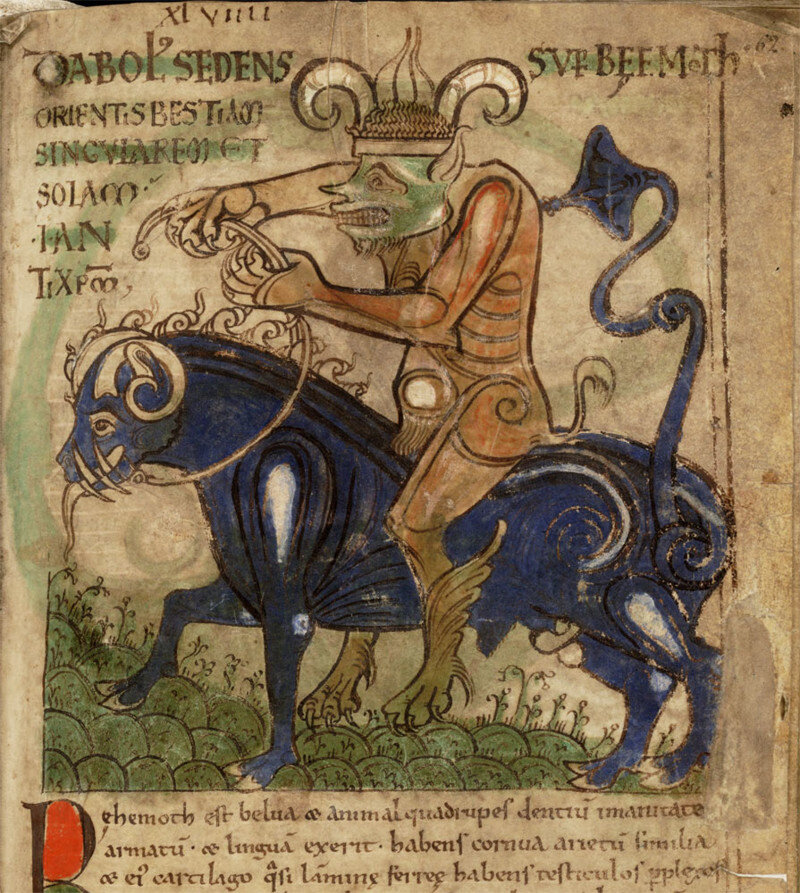 XLVIIII
DIABOL' SEDENS SUP BEEMOTH 62
ORIENTIS BESTIAM
SINGULAREM ET
SOLAM
·I·AN
TIXPM
Behemoth est belua & animal quadrupes dentiū inmanitate
armatū· & linguā exerit· habens cornua arietū similia
& ei' cartilago q̄si lāminę ferreę habens testiculos pplexos